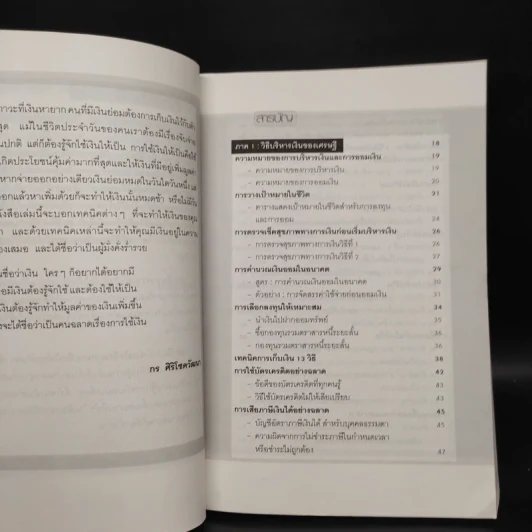 าวะที่เงินหายาก คนที่มีเงินย่อมต้องการเก็บเงินไว้กับตัว
สุด แม้ในชีวิตประจำวันของคนเราต้องมีเรื่องจับจ่าย
ปกติ แต่ก็ต้องรู้จักใช้เงินให้เป็น การใช้เงินให้เป็นคือใช้
กิดประโยชน์คุ้มค่ามากที่สุดและให้เงินที่มีอยู่เพิ่มมูลค่า
หากจ่ายออกอย่างเดียวเงินย่อมหมดในวันใดวันหนึ่ง แต่
อกแล้วหาเพิ่มด้วยก็จะทำให้เงินนั้นหมดช้า หรือไม่มีวัน
ังสือเล่มนี้จะบอกเทคนิคต่าง ๆ ที่จะทำให้เงินของคุณ
และด้วยเทคนิคเหล่านี้จะทำให้คุณมีเงินอยู่ในความ
องเสมอ และได้ชื่อว่าเป็นผู้มั่งคั่งร่ำรวย
ชื่อว่าเงิน ใคร ๆ ก็อยากได้อยากมี
อมีเงินต้องรู้จักใช้ และต้องใช้ให้เป็น
เงินต้องรู้จักทำให้มูลค่าของเงินเพิ่มขึ้น
จะได้ชื่อว่าเป็นคนฉลาดเรื่องการใช้เงิน
กร ศิริโชควัฒนา
สารบัญ
ภาค 1 : วิธีบริหารเงินของเศรษฐี 18
ความหมายของการบริหารเงินและการออมเงิน 19
- ความหมายของการบริหารเงิน 19
- ความหมายของการออมเงิน 20
การวางเป้าหมายในชีวิต 21
- ตารางแสดงเป้าหมายในชีวิตสำหรับการลงทุน
และการออม 24
การตรวจเช็คสุขภาพทางการเงินก่อนเริ่มบริหารเงิน 26
- การตรวจสุขภาพทางการเงินวิธีที่ 1 26
- การตรวจสุขภาพทางการเงินวิธีที่ 2 27
การคำนวณเงินออมในอนาคต 29
- สูตร : การคำนวณเงินออมในอนาคต 30
- ตัวอย่าง : การจัดสรรค่าใช้จ่ายก่อนออมเงิน 31
การเลือกลงทุนให้เหมาะสม 34
- นำเงินไปฝากออมทรัพย์ 35
- ซื้อกองทุนรวมตราสารหนี้ระยะสั้น 35
- กองทุนรวมตราสารหนี้ระยะสั้น 36
เทคนิคการเก็บเงิน 13 วิธี 38
การใช้บัตรเครดิตอย่างฉลาด 42
- ข้อดีของบัตรเครดิตที่ทุกคนรู้ 42
- วิธีใช้บัตรเครดิตไม่ให้เสียเปรียบ 43
การเสียภาษีเงินได้อย่างฉลาด 45
- บัญชีอัตราภาษีเงินได้ สำหรับบุคคลธรรมดา 45
- ความผิดจากการไม่ชำระภาษีในกำหนดเวลา
หรือชำระไม่ถูกต้อง 47